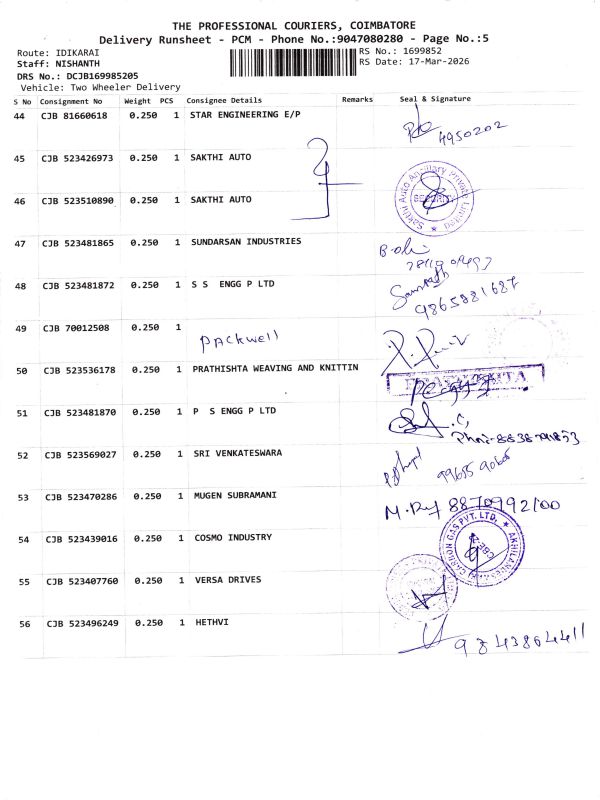 THE PROFESSIONAL COURIERS, COIMBATORE
Delivery Runsheet - PCM - Phone No.:9047080280 - Page No.:5
Route: IDIKARAI
RS No.: 1699852
Staff: NISHANTH
RS Date: 17-Mar-2026
DRS No.: DCJB169985205
Vehicle: Two Wheeler Delivery
S No Consignment No Weight PCS Consignee Details Remarks Seal & Signature
44 CJB 81660618 0.250 1 STAR ENGINEERING E/P
4950202
45 CJB 523426973 0.250 1 SAKTHI AUTO
Sakthi Auto Ancillary Private Limited
SECURITY
46 CJB 523510890 0.250 1 SAKTHI AUTO
47 CJB 523481865 0.250 1 SUNDARSAN INDUSTRIES
48 CJB 523481872 0.250 1 S S ENGG P LTD
9865881687
49 CJB 70012508 0.250 1 Packwell
50 CJB 523536178 0.250 1 PRATHISHTA WEAVING AND KNITTIN
51 CJB 523481870 0.250 1 P S ENGG P LTD
52 CJB 523569027 0.250 1 SRI VENKATESWARA
53 CJB 523470286 0.250 1 MUGEN SUBRAMANI
8870992100
54 CJB 523439016 0.250 1 COSMO INDUSTRY
CARBON GAS PVT. LTD.
55 CJB 523407760 0.250 1 VERSA DRIVES
56 CJB 523496249 0.250 1 HETHVI
9843864411